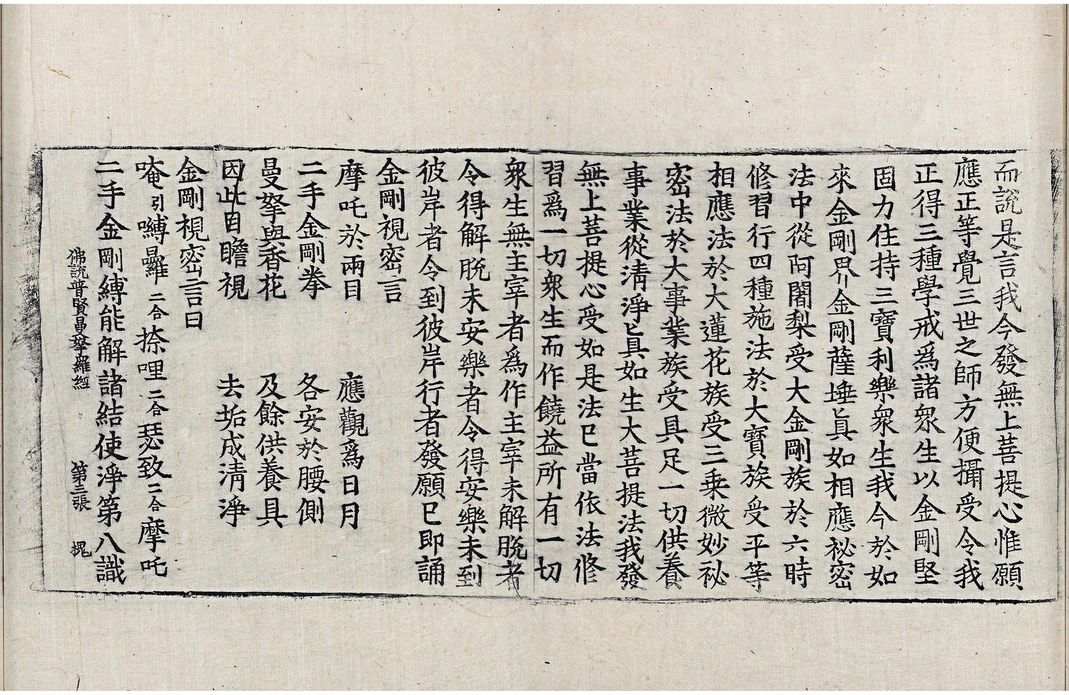 而說是言我今發無上菩提心惟願
應正等覺三世之師方便攝受令我
正得三種學戒為諸衆生以金剛堅
固力住持三寶利樂衆生我今於如
來金剛界金剛薩埵真如相應祕密
法中從阿闍梨受大金剛族於六時
修習行四種施法於大寶族受平等
相應法於大蓮花族受三乘微妙祕
密法於大事業族受具足一切供養
事業從清淨𠤎具如生大菩提法我發
無上菩提心受如是法已當依法修
習爲一切衆生而作饒益所有一切
衆生無主宰者爲作主宰未解脫者
令得解脫未安樂者令得安樂未到
彼岸者令到彼岸行者發願已即誦
金剛視密言
摩吒於兩目　應觀爲日月
二手金剛拳　各安於腰側
曼拏與香花　及餘供養具
因此自瞻視　去垢成清淨
金剛視密言曰
唵引嚩曩二合捺哩二合瑟致二合摩吒
二手金剛縛能解諸結使淨第八識
佛說普賢曼拏羅經　第三張